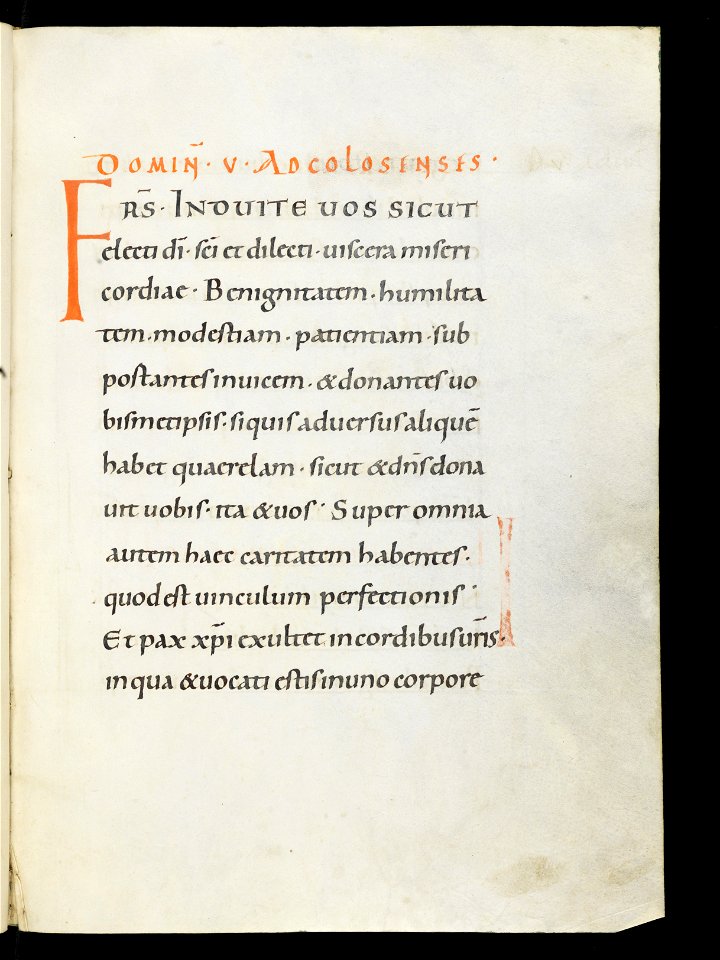 DOMIN̄ · V · AD COLOSENSES ·
FRS̄ · INDUITE UOS SICUT
electi dī · sc̄i et dilecti · uiscera miseri
cordiae · Benignitatem · humilita
tem · modestiam · patientiam · sub
portantes inuicem · & donantes uo
bismetipsis · siquis aduersus aliquē
habet quaerelam · sicut & dn̄s dona
uit uobis · ita & uos · Super omnia
autem haec caritatem habentes ·
quod est uinculum perfectionis ·
Et pax xp̄i exultet in cordibus ur̄is ·
in qua & uocati estis in uno corpore